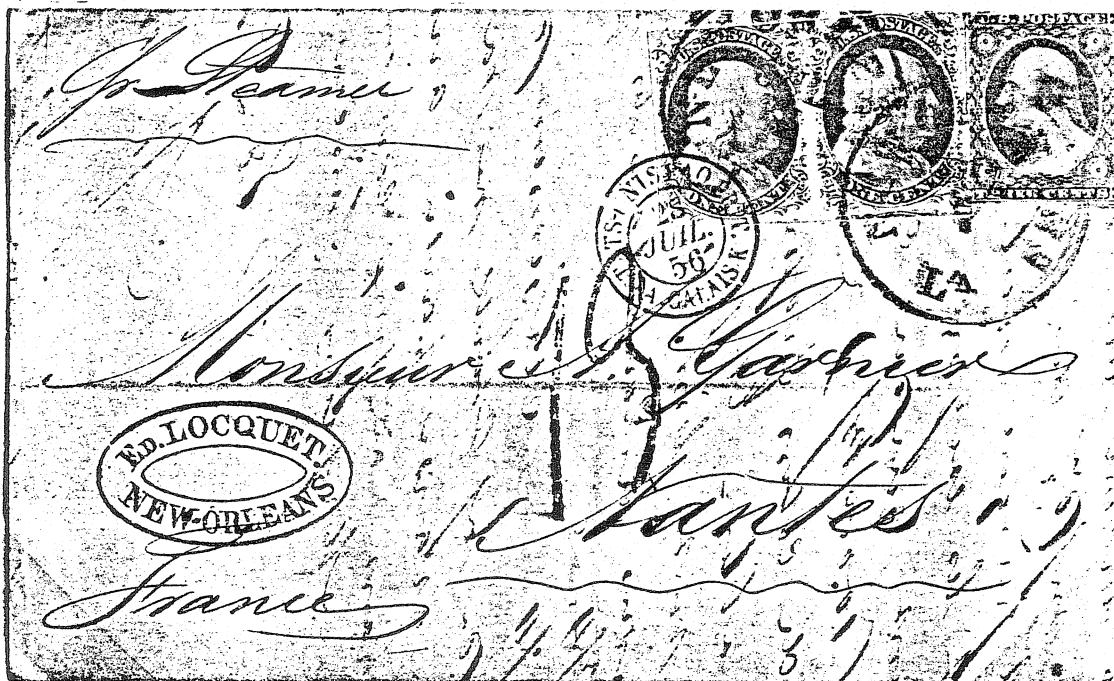 pr Steamer
U.S. POSTAGE
U.S. POSTAGE
U.S. POSTAGE
ONE CENT
ONE CENT
THREE CENTS
ETATS-UNIS PAQ. BRIT.
23
JUIL.
56
A CALAIS K
LA
Monsieur Garnier
ED. LOCQUET.
NEW-ORLEANS
Nantes
France